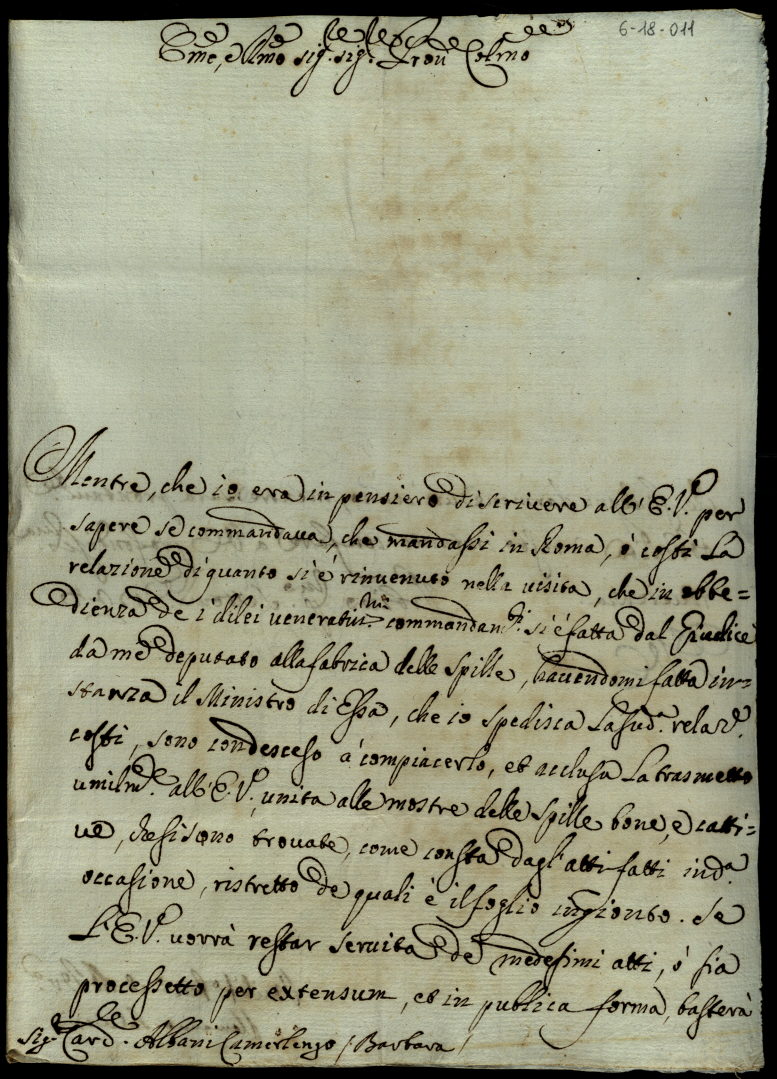 6-18-011
Eme, e Rmo Sig.r Sig.r Pron Colmo
Mentre, che io era in pensiero di scrivere all'E.V. per
sapere se commandava, che mandassi in Roma, ò costi La
relazione di quanto si è rinvenuto nella visita, che in obbe=
dienza de i di lei veneratiss.mi commandam.ti si è fatta dal Giudice
da me deputato alla fabrica delle Spille, havendomi fatta in=
stanza il Ministro di Essa, che io spedisca La sud.a relaz.e
costi, sono condesceso à compiacerlo, et acclusa La trasmetto
umilm.e all'E.V., unita alle mostre delle Spille bone, e catti=
ve, che si sono trovate, come consta dagl'atti fatti in d.a
occasione, ristretto de quali è il foglio ingionto. Se
L'E.V. vorrà restar servita de medesimi atti, ò sia
processetto per extensum, et in publica forma, basterà
Sig.r Card.le Albani Camerlengo / Barbara /